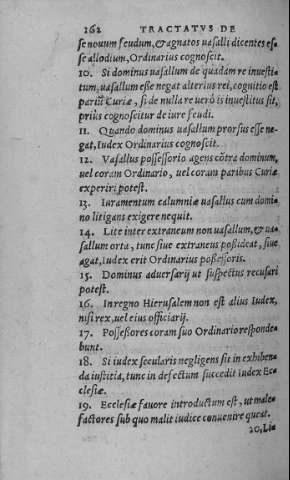 262 TRACTATVS DE
se nouum feudum, & agnatos uasalli dicentes es=
se allodium, Ordinarius cognoscit.
10. Si dominus uasallum de quadam re inuesti=
tum, uasallum esse negat alterius rei, cognitio est
pariũ Curiæ, si de nulla re uerò is inuestitus sit,
priùs cognoscitur de iure feudi.
11. Quando dominus uasallum prorsus esse ne=
gat, Iudex Ordinarius cognoscit.
12. Vasallus possessorio agens cõtra dominum,
uel coram Ordinario, uel coram paribus Curiæ
experiri potest.
13. Iuramentum calumniæ uasallus cum domi=
no litigans exigere nequit.
14. Lite inter extraneum non uasallum, & ua=
sallum orta, tunc siue extraneus possideat, siue
agat, Iudex erit Ordinarius possessoris.
15. Dominus aduersarij ut suspectus recusari
potest.
16. In regno Hierusalem non est alius Iudex,
nisi rex, uel eius officiarij.
17. Possessores coram suo Ordinario responde=
bunt.
18. Si iudex secularis negligens sit in exhiben=
da iustitia, tunc in defectum succedit iudex Ec=
clesiæ.
19. Ecclesiæ fauore introductum est, ut male=
factores sub quo malit iudice conuenire queat.
20. Lis